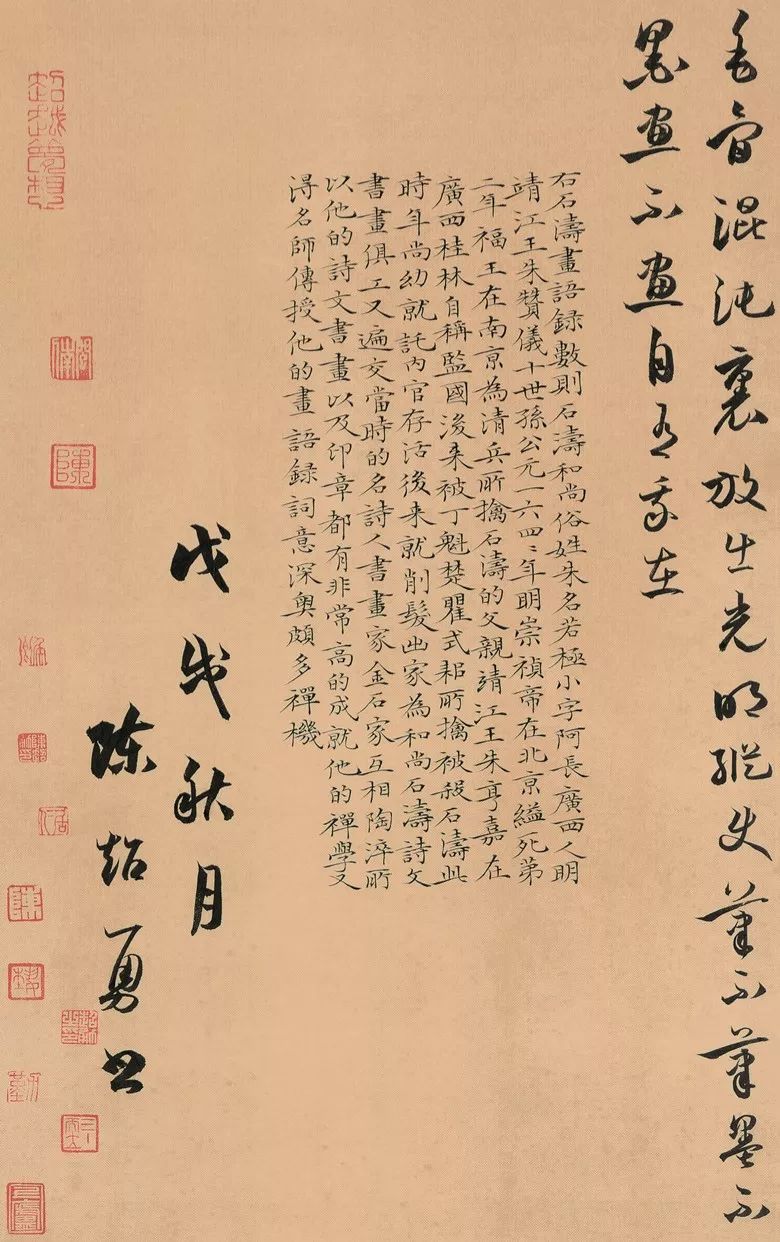 毛骨混沌裏放出光明縱使筆不筆墨不
墨畫不畫自有我在
右石濤畫語録數則石濤和尚俗姓朱名若極小字阿長廣西人明
靖江王朱贊儀十世孫公元一六四〻年明崇禎帝在北京縊死第
二年福王在南京為清兵所擒石濤的父親靖江王朱亨嘉在
廣西桂林自稱監國後来被丁魁楚瞿式耜所擒被殺石濤此
時年尚幼就託內官存活後来就削髮出家為和尚石濤詩文
書畫俱工又遍交當時的名詩人書畫家金石家互相陶淬所
以他的詩文書畫以及印章都有非常高的成就他的禪學又
得名師傳授他的畫語録詞意深奧頗多禪機
戊戌秋月
陈超勇书
陳
陳